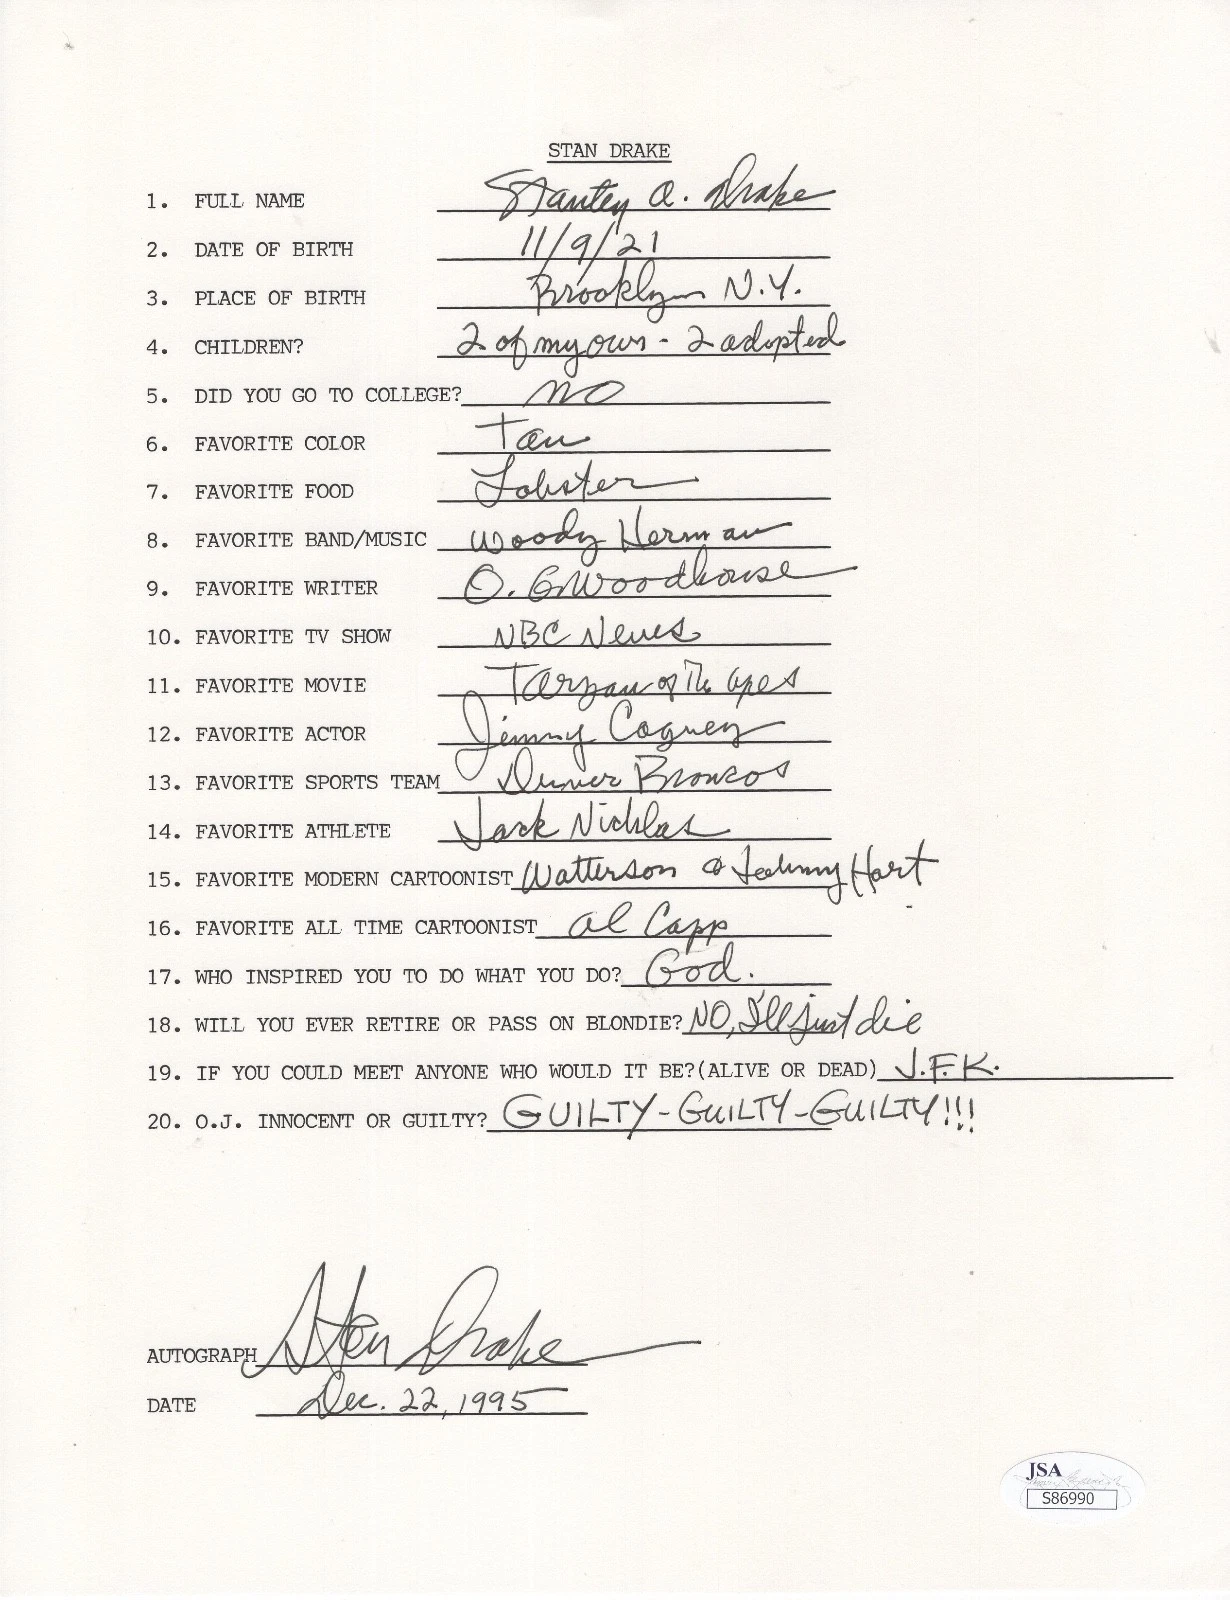 STAN DRAKE
1. FULL NAME Stanley A. Drake
2. DATE OF BIRTH 11/9/21
3. PLACE OF BIRTH Brooklyn N.Y.
4. CHILDREN? 2 of my own - 2 adopted
5. DID YOU GO TO COLLEGE? NO
6. FAVORITE COLOR Tan
7. FAVORITE FOOD Lobster
8. FAVORITE BAND/MUSIC Woody Herman
9. FAVORITE WRITER O. G Woodhouse
10. FAVORITE TV SHOW NBC News
11. FAVORITE MOVIE Tarzan of The apes
12. FAVORITE ACTOR Jimmy Cagney
13. FAVORITE SPORTS TEAM Denver Broncos
14. FAVORITE ATHLETE Jack Nicklas
15. FAVORITE MODERN CARTOONIST Watterson & Johnny Hart
16. FAVORITE ALL TIME CARTOONIST Al Capp
17. WHO INSPIRED YOU TO DO WHAT YOU DO? God.
18. WILL YOU EVER RETIRE OR PASS ON BLONDIE? NO, I'll just die
19. IF YOU COULD MEET ANYONE WHO WOULD IT BE?(ALIVE OR DEAD) J.F.K.
20. O.J. INNOCENT OR GUILTY? GUILTY-GUILTY-GUILTY!!!
AUTOGRAPH Stan Drake
DATE Dec. 22, 1995
JSA
S86990